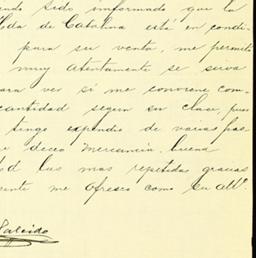 endo sido informado que la
lda de Catalina está en condi-
para su venta, me permito
muy atentamente se sirva
ara ver si me conviene com-
cantidad segun su clase, pues
tengo expendio de varias has
e deceo mercancia buena
d las mas repetidas gracias
ente me ofresco como su att°.
Salcido